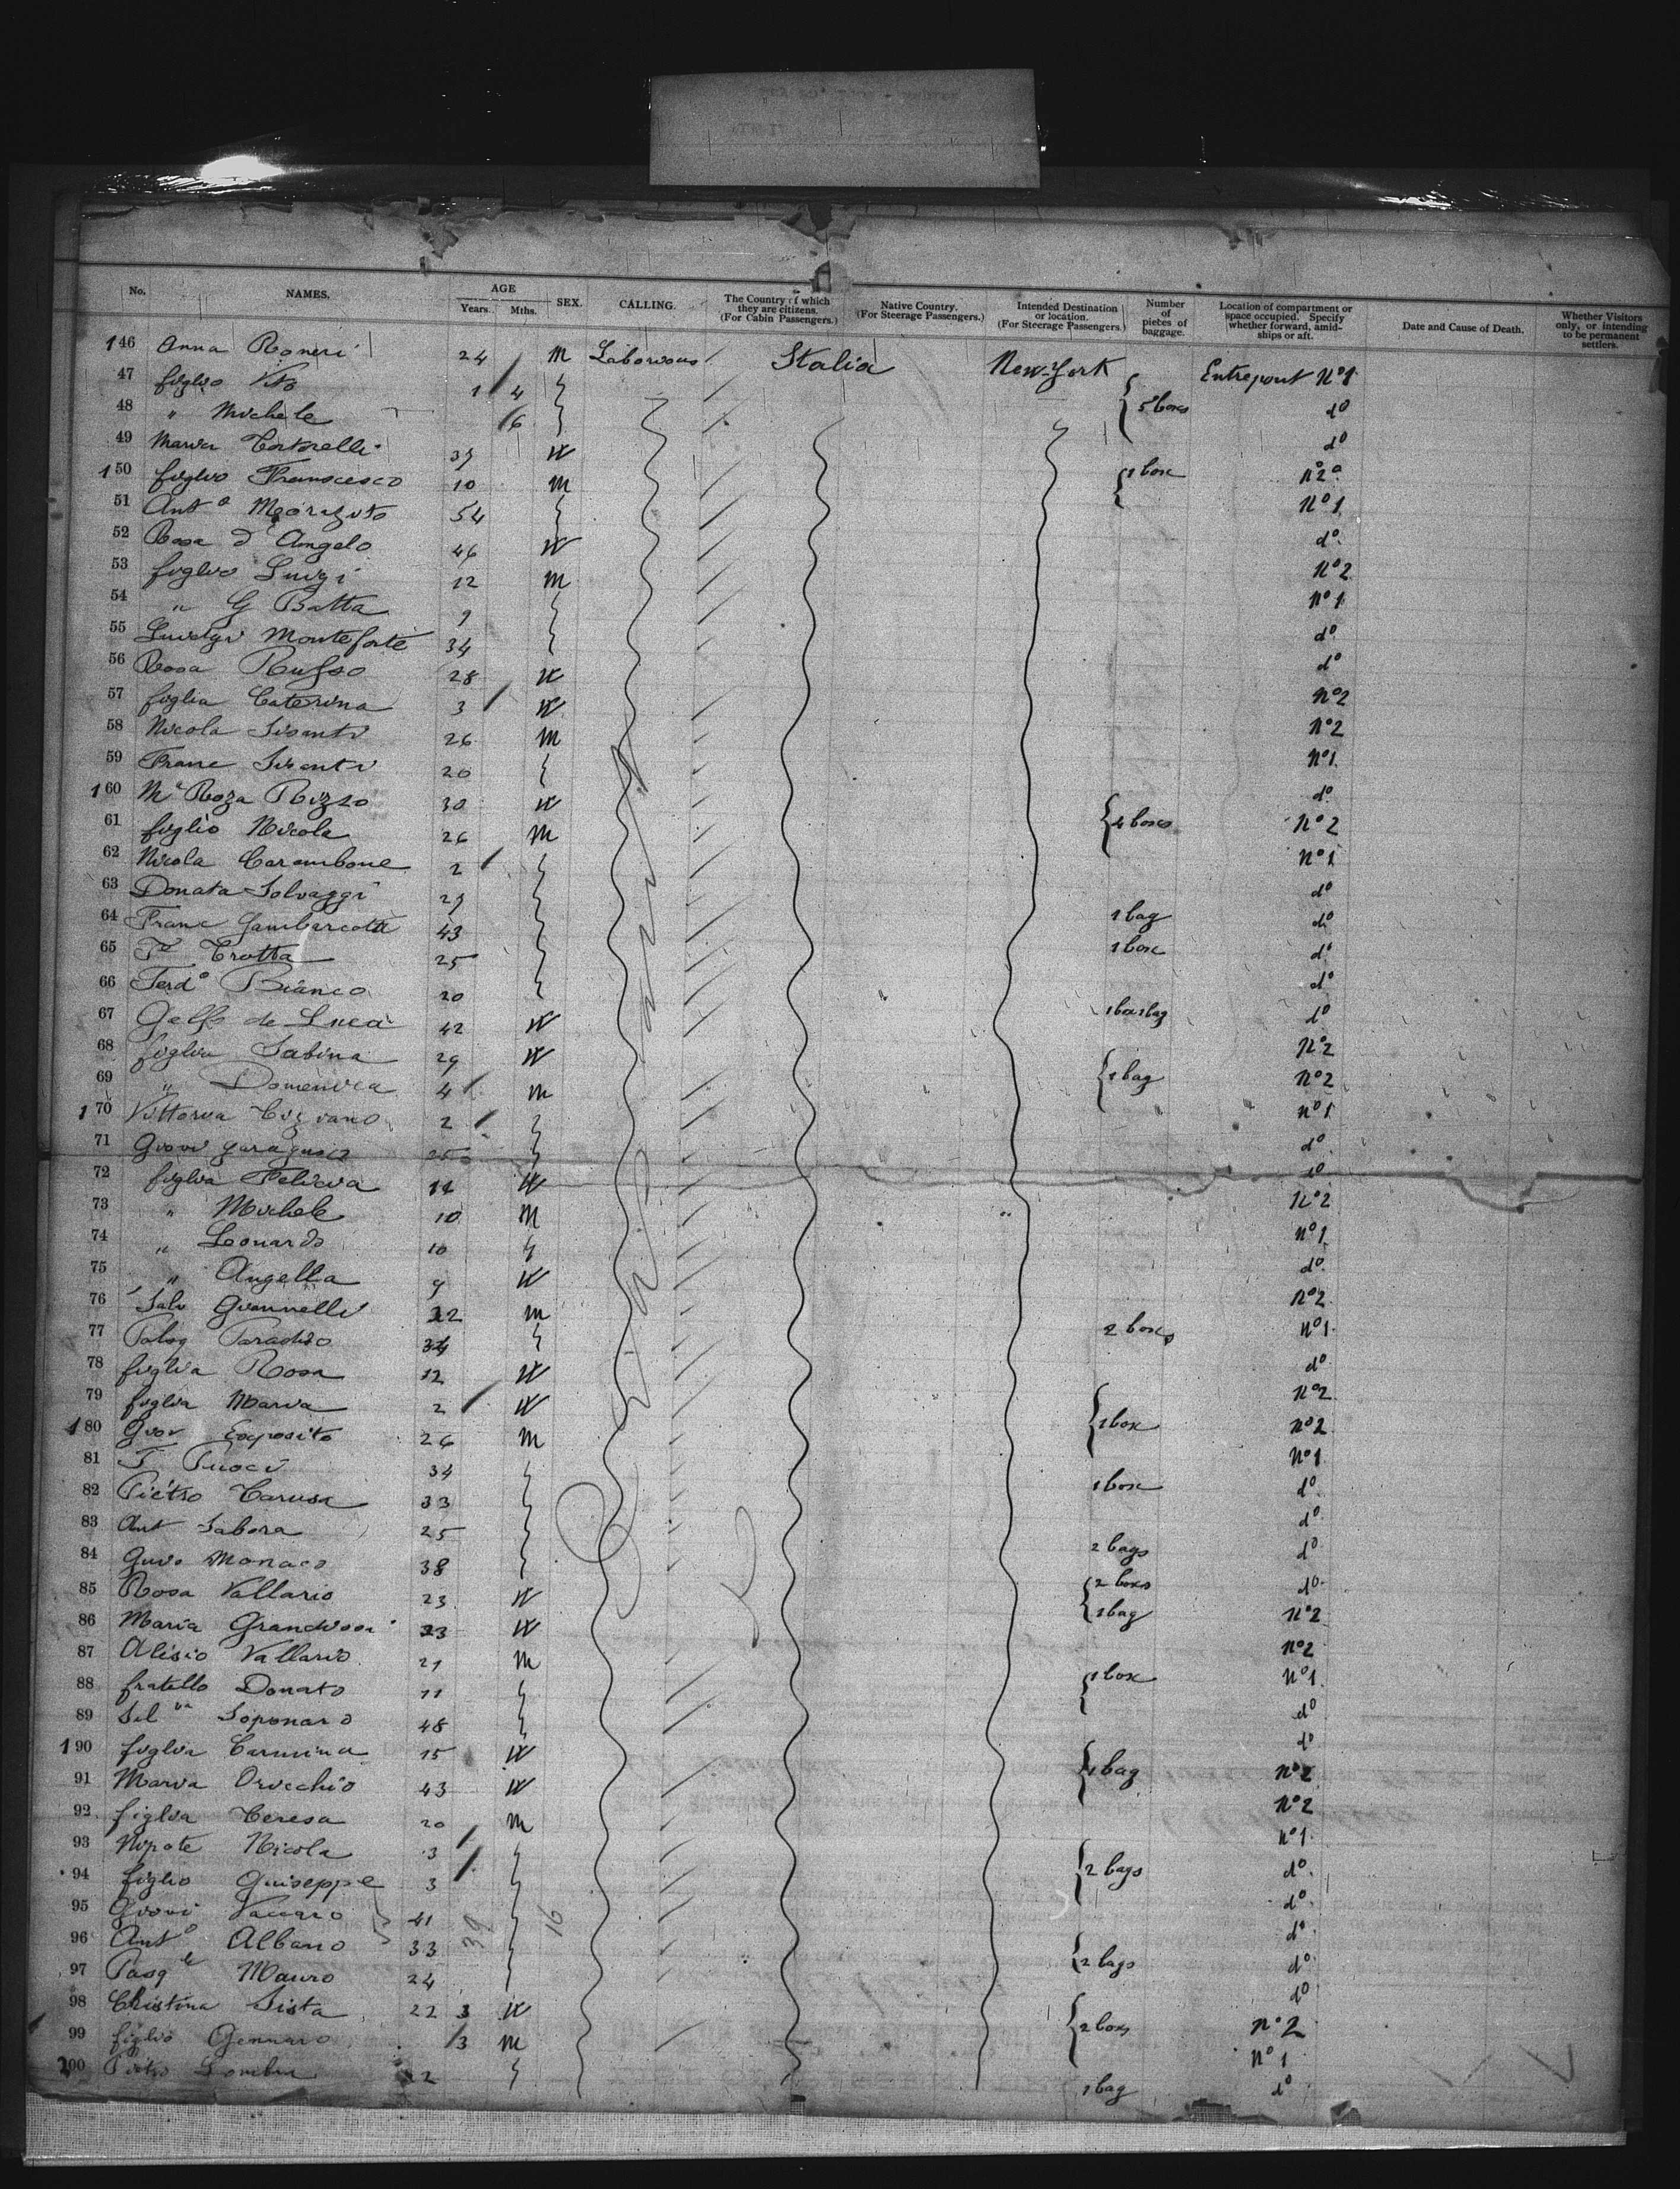 No. NAMES. AGE Years. Mths. SEX. CALLING. The Country of which they are citizens. (For Cabin Passengers.) Native Country. (For Steerage Passengers.) Intended Destination or location. (For Steerage Passengers.) Number of pieces of baggage. Location of compartment or space occupied. Specify whether forward, amidships or aft. Date and Cause of Death. Whether Visitors only, or intending to be permanent settlers.
146 Anna Roneri 24 m Italia New-York Entrepont No 1
47 figlio Vito 1 4 5 boxs do
48 " Michele 6 do
49 Maria W
150 figlio Francesco 10 m 1 box No 2
51 Anto 54 No 1
52 Rosa d'Angelo 46 W do
53 figlio Luigi 12 m No 2
54 " G Batta 9 No 1
55 Monteforte 34 do
56 Rosa Russo 28 W do
57 figlia Caterina 3 W No 2
58 Nicola Sisanti 26 m No 2
59 Franc Sisanti 20 No 1
160 Ma Roza Rizzo 30 W do
61 figlio Nicola 26 m 4 boxs No 2
62 Nicola Carambone 2 No 1
63 Donata Solvaggi do
64 Franc Gambarcotta 43 1 bag do
65 Trotta 25 1 box do
66 Ferdo Bianco 20 do
67 de Luca 42 W 1 box 1 bag do
68 figlia Sabina 29 W No 2
69 " Domenica 4 m 1 bag No 2
170 Vittoria 2 No 1
71 Giovi do
72 figlia Felicia 11 W do
73 " Michele 10 m No 2
74 " Leonardo 10 No 1
75 " Angella 9 W do
76 Salv Giannelli 22 m No 2
77 Paradiso 34 2 boxs No 1
78 figlia Rosa 12 W do
79 figlia Maria 2 W No 2
180 Giov Exposito 26 m 1 box No 2
81 34 No 1
82 Pietro Carusa 33 1 box do
83 Ant Sabora 25 do
84 Monaco 38 2 bags do
85 Rosa Vallario 23 W 2 boxs do
86 Maria 23 W 1 bag No 2
87 Alisio Vallario 21 m No 2
88 fratello Donato 11 1 box No 1
89 Soponaro 48 do
190 figlia Carmina 15 W do
91 Maria Orecchio 43 W 1 bag No 2
92 figlia Teresa 20 m No 2
93 Nipote Nicola 3 No 1
94 figlio Guiseppe 3 2 bags do
95 Giovi Vaccaro 41 do
96 Anto Albano 33 39 16 do
97 Pasqle Mauro 24 2 bags do
98 Christina Sista 22 3 W do
99 figlio Gennaro 3 m 2 boxs No 2
200 Pietro 22 No 1
1 bag do